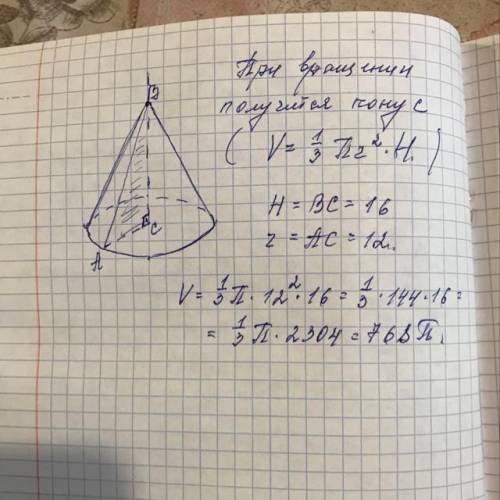 При вращении
получится конус
( V = 1/3 Пr² · H. )
B
H = BC = 16
r = AC = 12.
C
A
V = 1/3 П · 12² · 16 = 1/3 · 144 · 16 =
= 1/3 П · 2304 = 768 П.